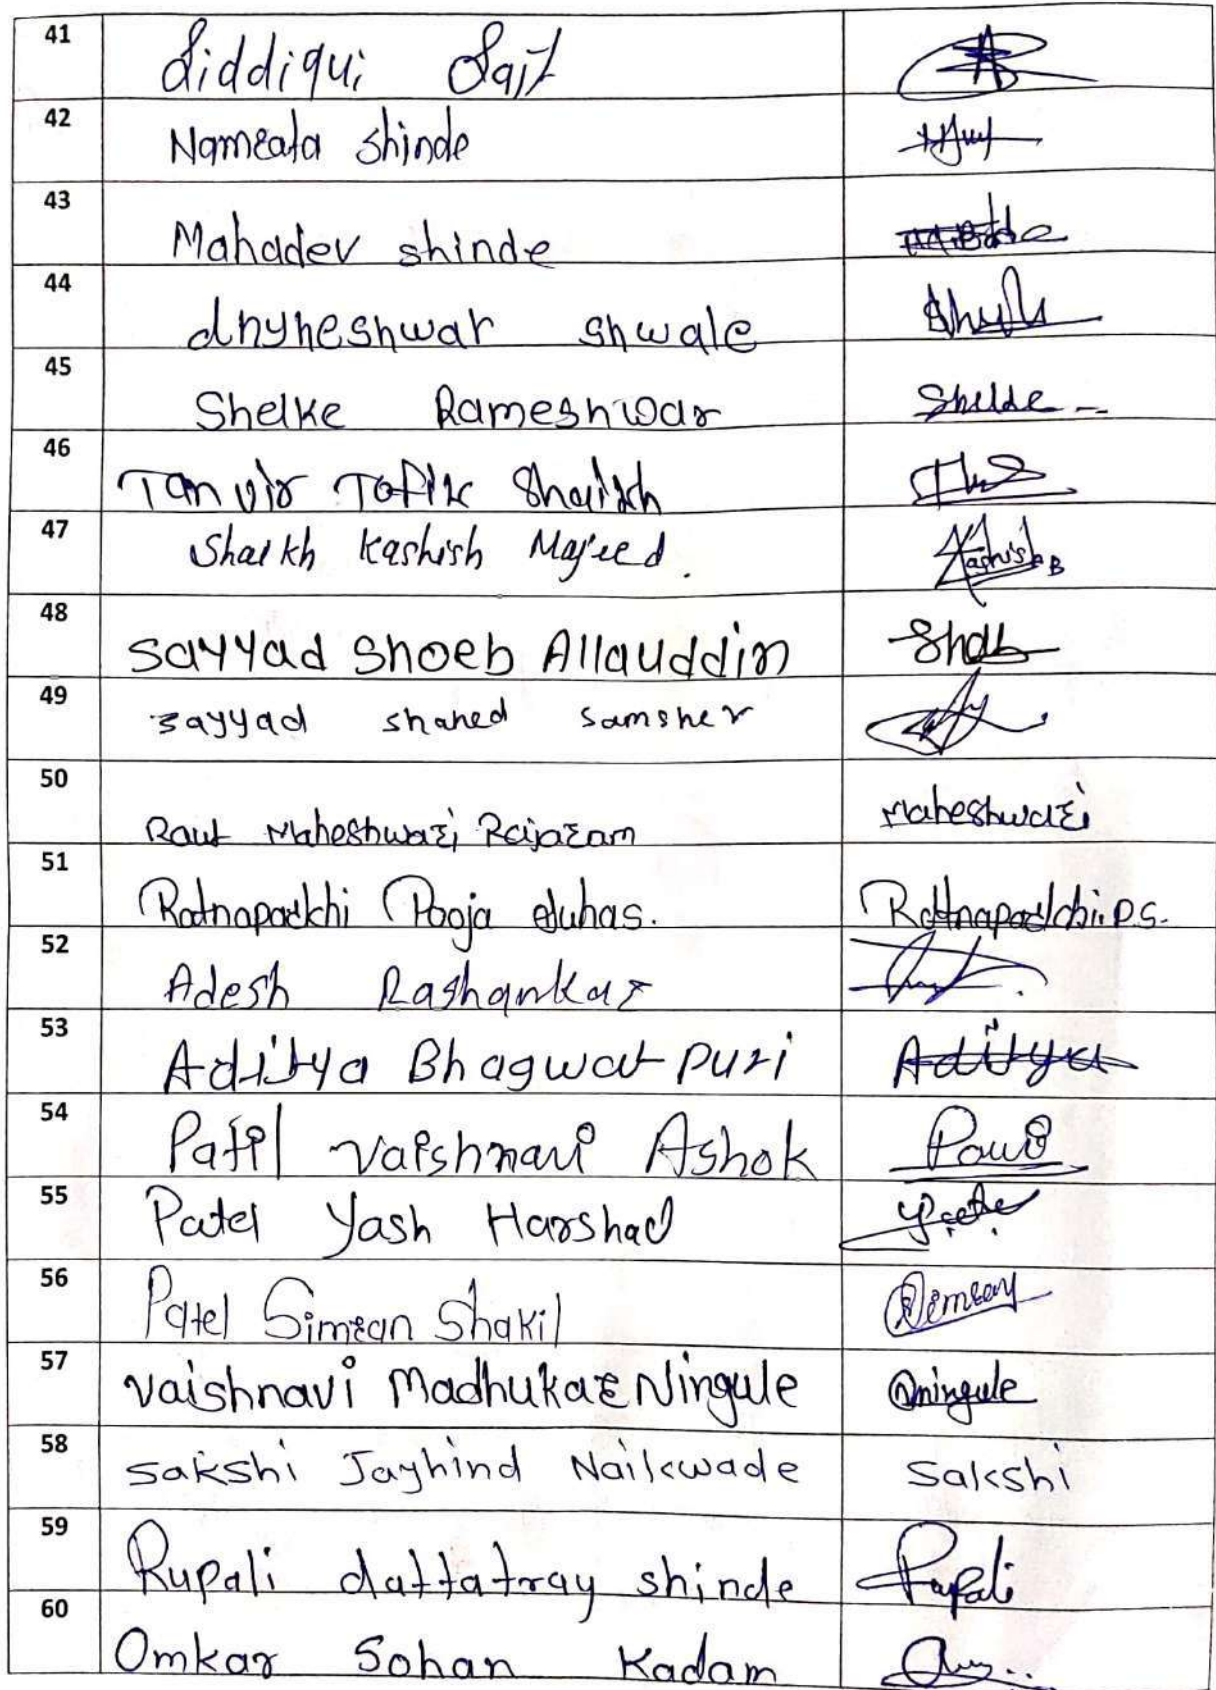 41 Siddiqui Saif
42 Namrata shinde
43 Mahadev shinde
44 dnyneshwar shwale
45 Shelke Rameshwar Shelke
46 Tanvir Tofik Shaikh
47 Shaikh Kashish Majeed. Kashish B
48 Sayyad Shoeb Allauddin Shoeb
49 sayyad shahed samsher
50 Raut Maheshwari Rajaram Maheshwari
51 Ratnaparkhi Pooja Suhas. Ratnaparkhi.P.S.
52 Adesh Rashankar
53 Aditya Bhagwat puri Aditya
54 Patil Vaishnavi Ashok
55 Patel Yash Harshad
56 Patel Simran Shakil Simran
57 Vaishnavi Madhukar Ningule ningule
58 Sakshi Jayhind Naikwade Sakshi
59 Rupali dattatray shinde Rupali
60 Omkar Sohan Kadam